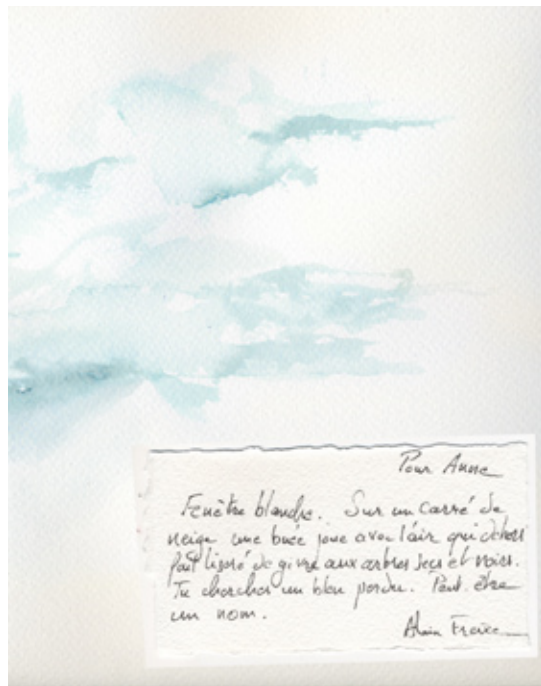 Pour Anne
Fenêtre blanche. Sur un carré de
neige une buée joue avec l'air qui dehors
fait liseré de givre aux arbres secs et noirs.
Tu cherches un bleu perdu. Peut être
un nom.
Alain